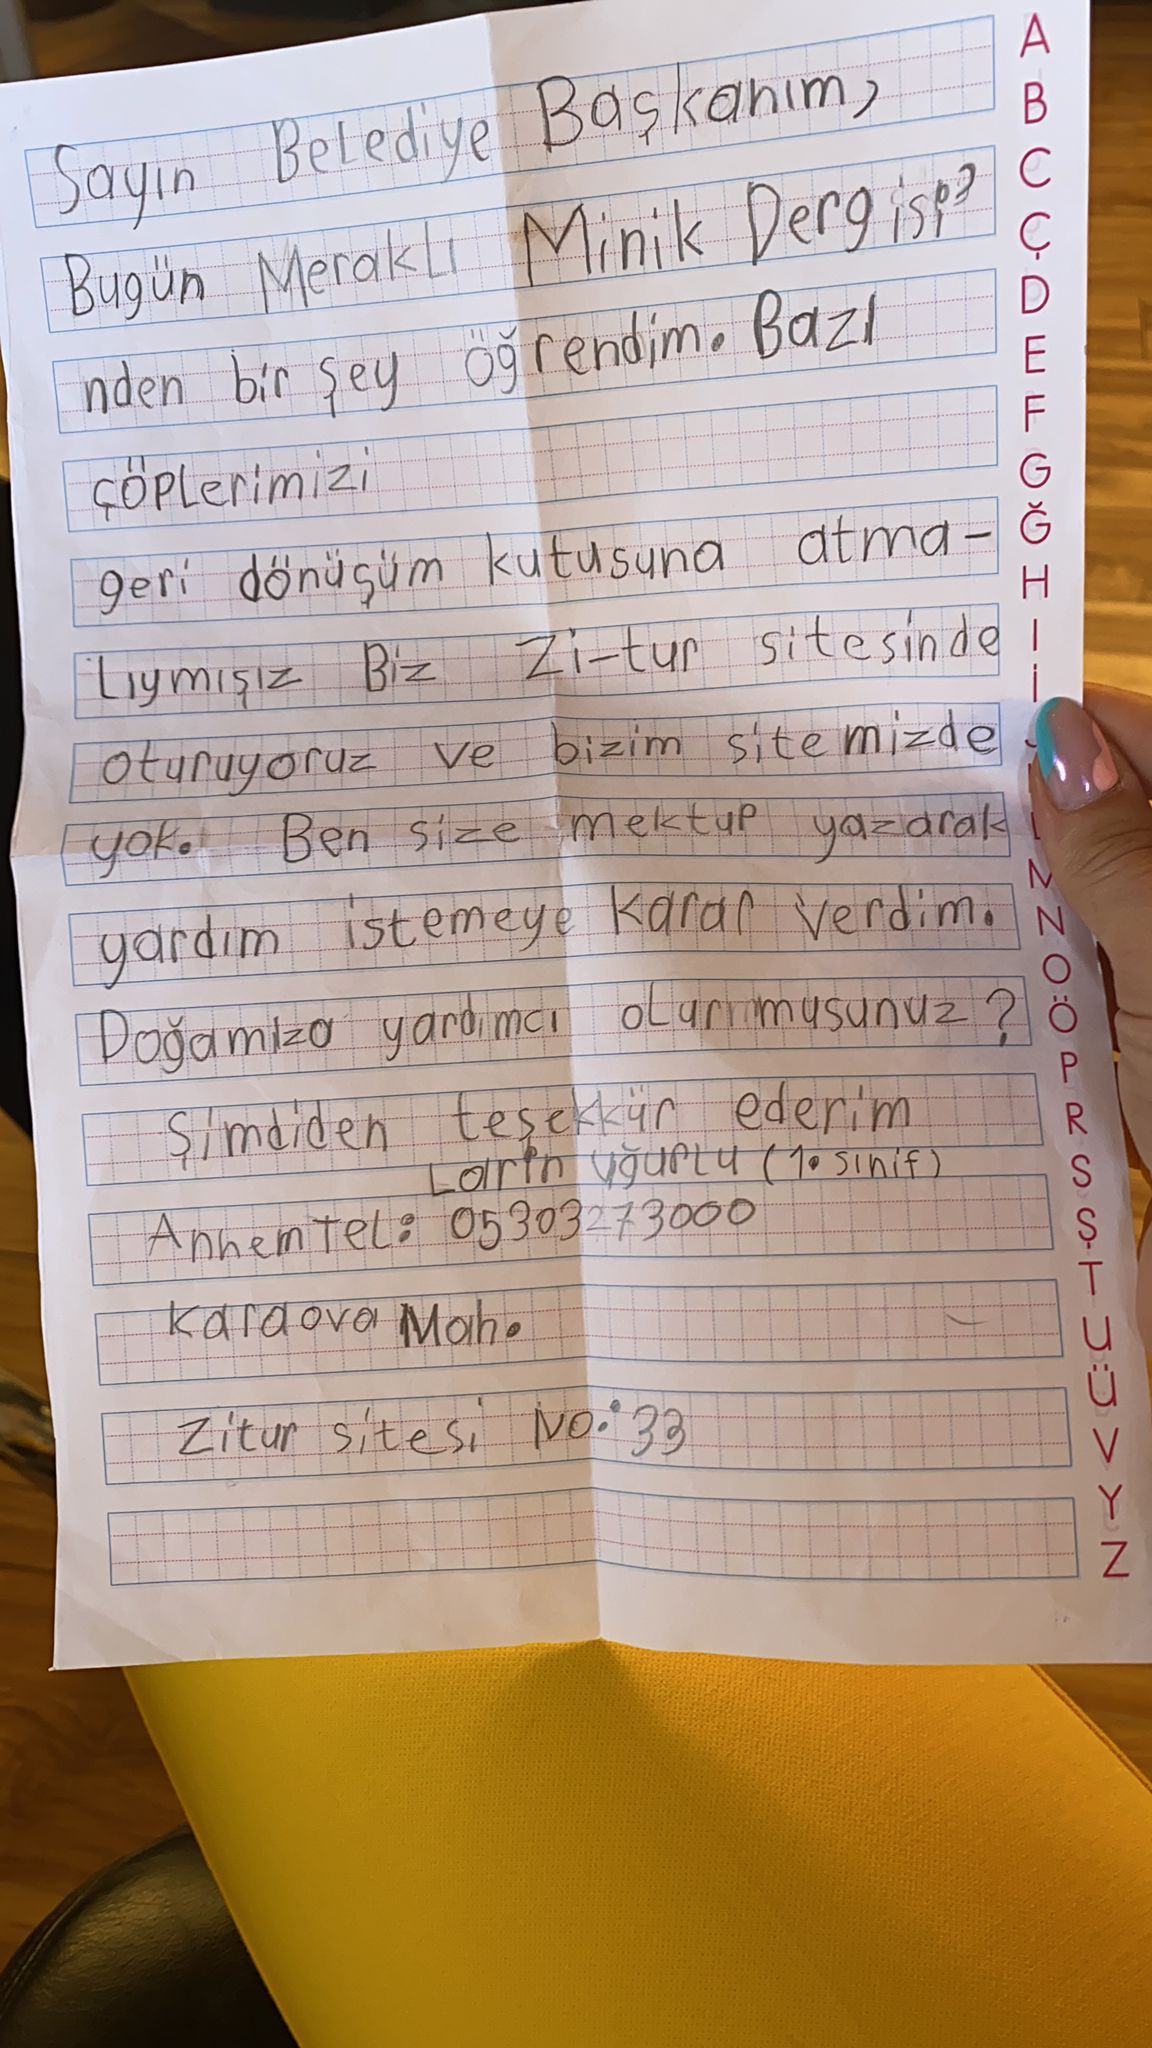 Sayın Belediye Başkanım,
Bugün Meraklı Minik Dergisi'
nden bir şey öğrendim. Bazı
çöplerimizi
geri dönüşüm kutusuna atma-
lıymışız Biz Zi-tur sitesinde
oturuyoruz ve bizim sitemizde
yok. Ben size mektup yazarak
yardım istemeye karar verdim.
Doğamıza yardımcı olurmusunuz?
Şimdiden teşekkür ederim
Larin Uğurlu (1. sınıf)
Annem Tel: 05303273000
Karaova Mah.
Zitur sitesi No: 33
A
B
C
Ç
D
E
F
G
Ğ
H
I
İ
M
N
O
Ö
P
R
S
Ş
T
U
Ü
V
Y
Z